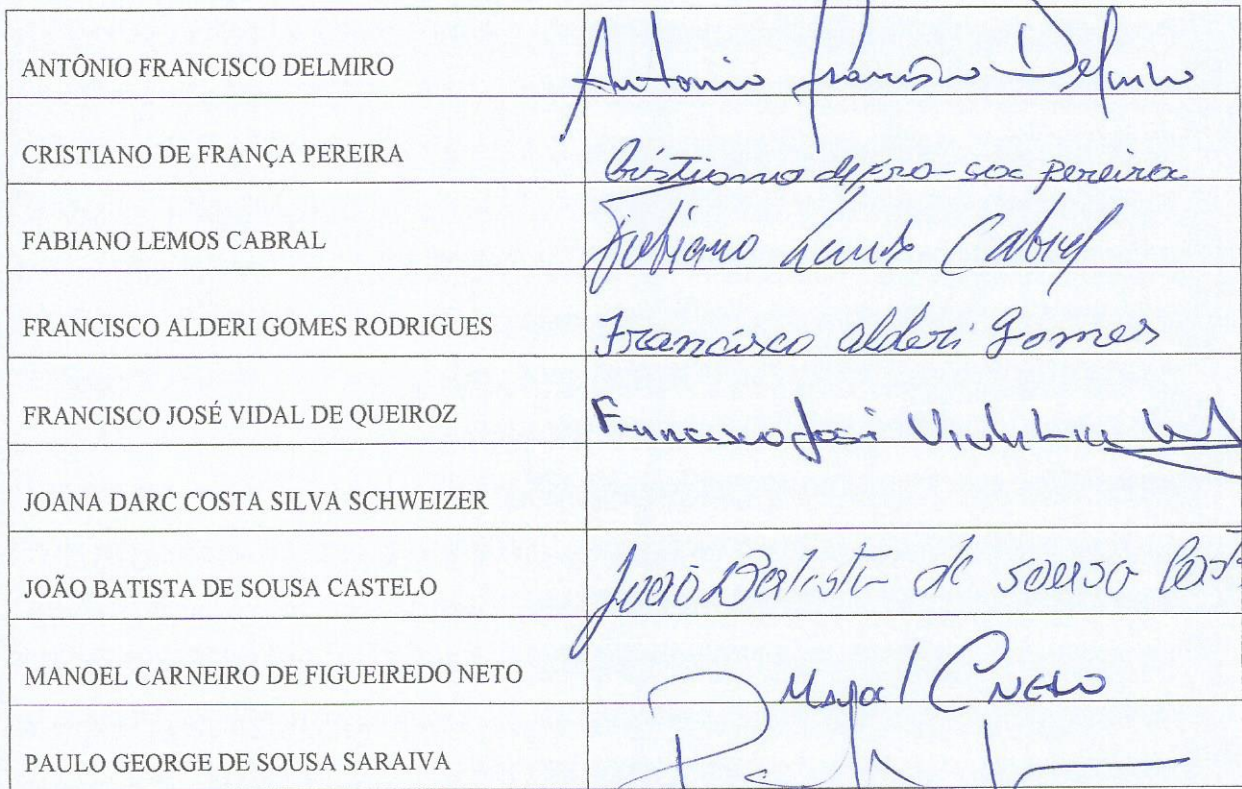 ANTÔNIO FRANCISCO DELMIRO Antonio Francisco Delmiro
CRISTIANO DE FRANÇA PEREIRA Cristiano de França pereira
FABIANO LEMOS CABRAL Fabiano Lemos Cabral
FRANCISCO ALDERI GOMES RODRIGUES Francisco Alderi Gomes
FRANCISCO JOSÉ VIDAL DE QUEIROZ Francisco José
JOANA DARC COSTA SILVA SCHWEIZER
JOÃO BATISTA DE SOUSA CASTELO João Batista de sousa
MANOEL CARNEIRO DE FIGUEIREDO NETO C NETO
PAULO GEORGE DE SOUSA SARAIVA